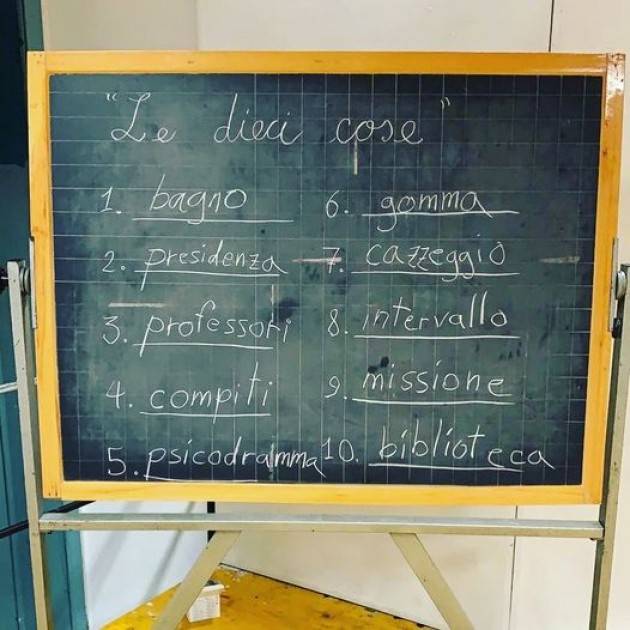 "Le dieci cose"
1. bagno
2. presidenza
3. professori
4. compiti
5. psicodramma
6. gomma
7. cazzeggio
8. intervallo
9. missione
10. biblioteca